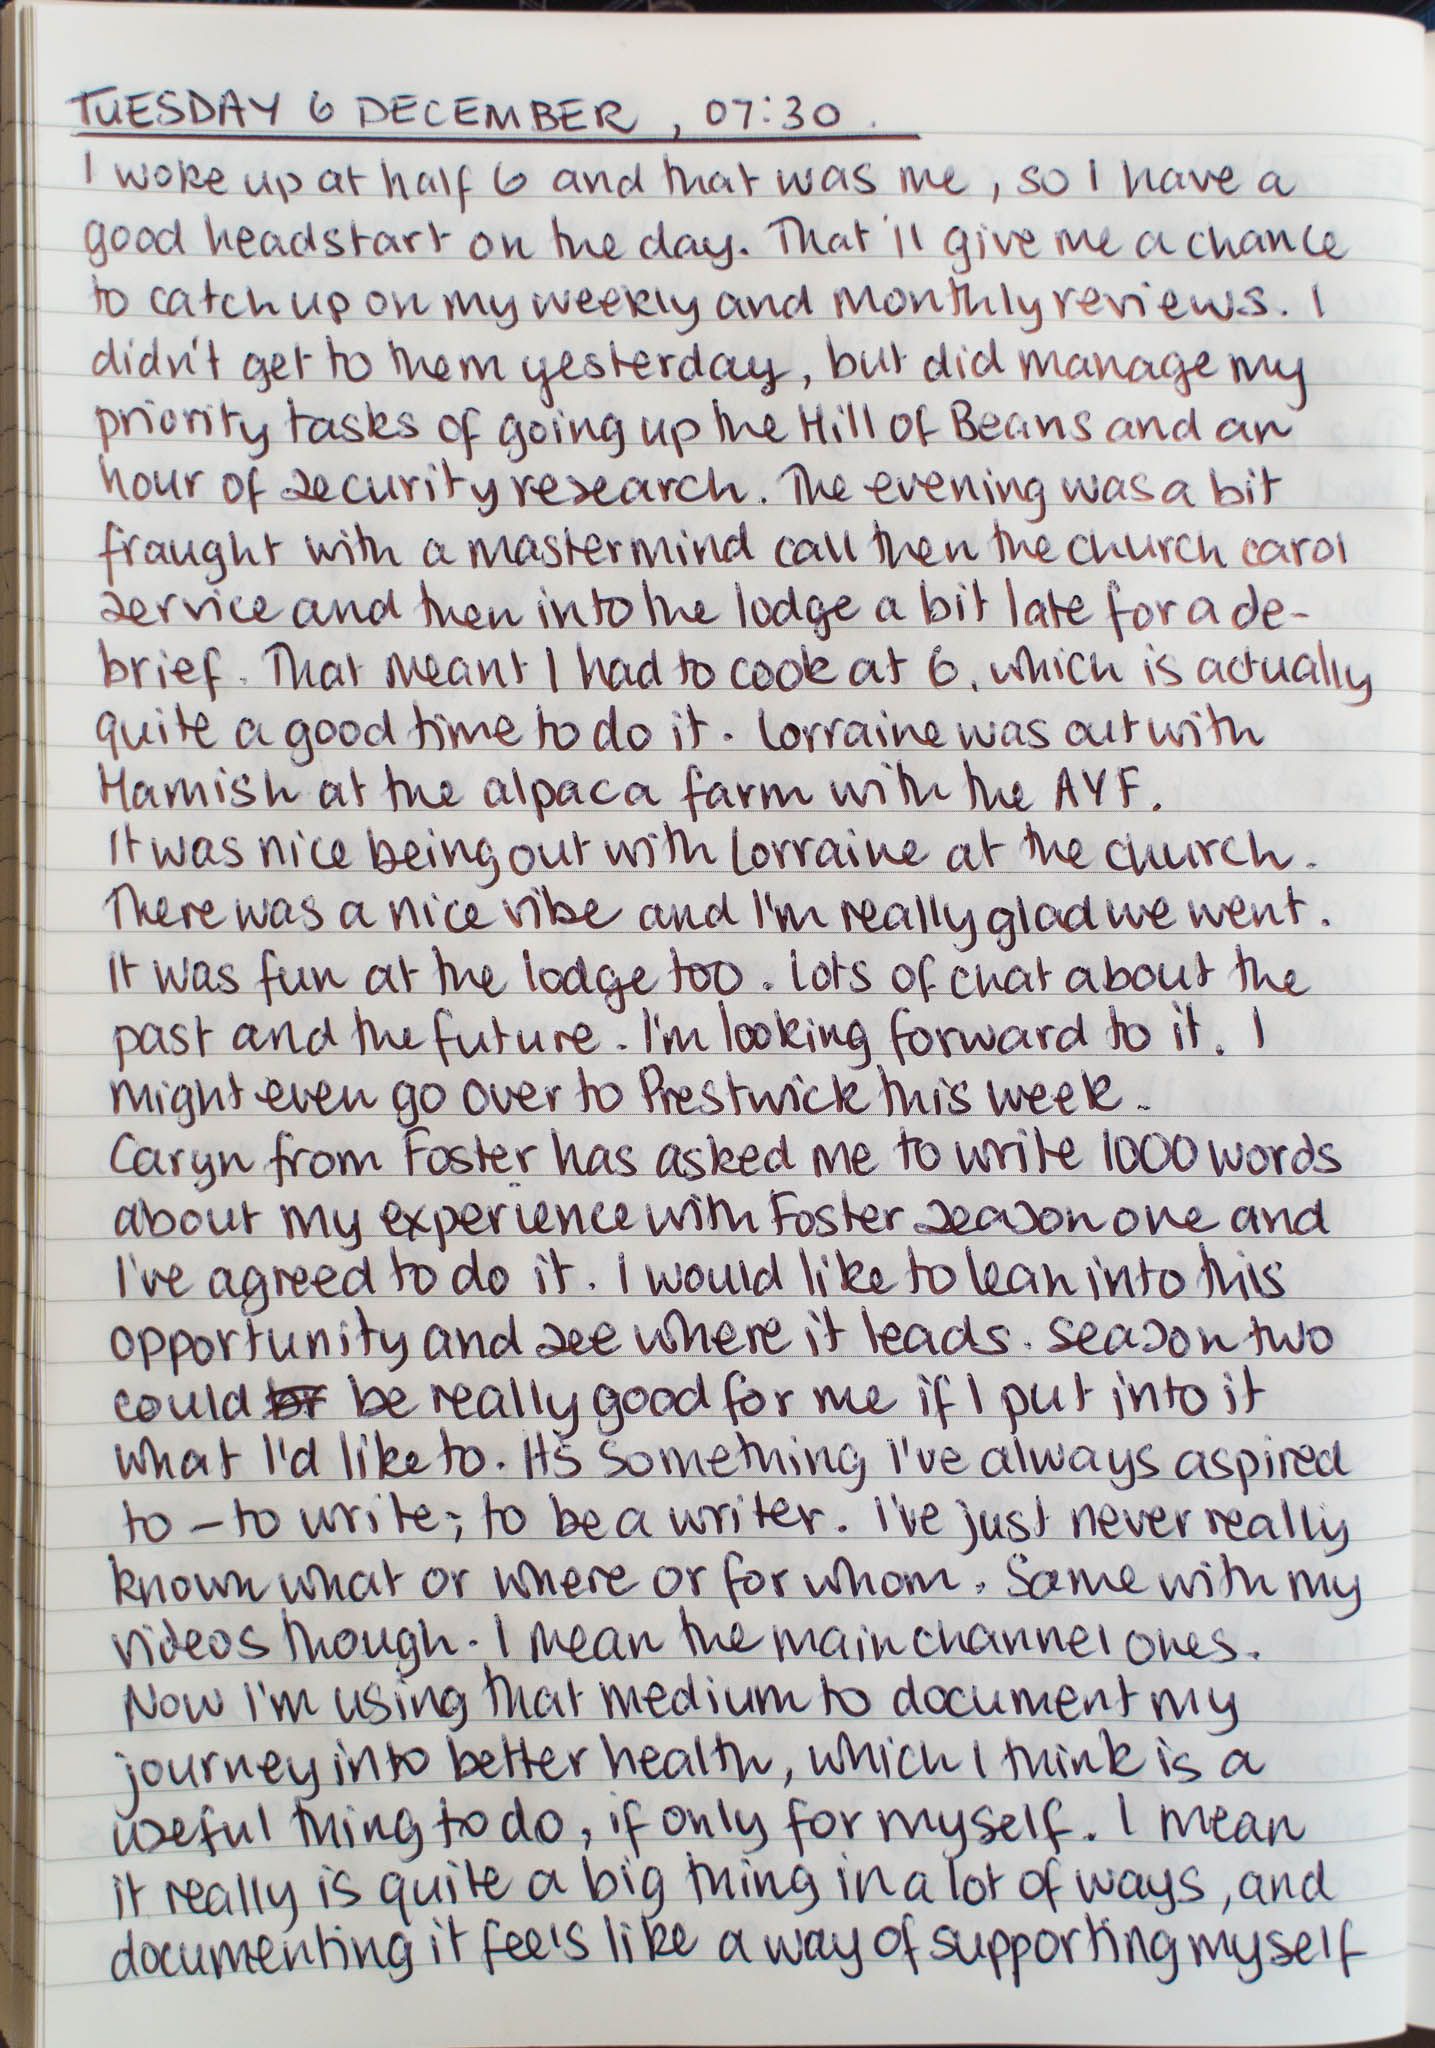 TUESDAY 6 DECEMBER, 07:30.
I woke up at half 6 and that was me, so I have a
good headstart on the day. That'll give me a chance
to catch up on my weekly and monthly reviews. I
didn't get to them yesterday, but did manage my
priority tasks of going up the Hill of Beans and an
hour of security research. The evening was a bit
fraught with a mastermind call then the church carol
service and then into the lodge a bit late for a de-
brief. That meant I had to cook at 6, which is actually
quite a good time to do it. Lorraine was out with
Hamish at the alpaca farm with the AYF.
It was nice being out with Lorraine at the church.
There was a nice vibe and I'm really glad we went.
It was fun at the lodge too. Lots of chat about the
past and the future. I'm looking forward to it. I
might even go over to Prestwick this week.
Caryn from Foster has asked me to write 1000 words
about my experience with Foster season one and
I've agreed to do it. I would like to lean into this
opportunity and see where it leads. Season two
could be really good for me if I put into it
what I'd like to. It's something I've always aspired
to – to write; to be a writer. I've just never really
known what or where or for whom. Same with my
videos though. I mean the main channel ones.
Now I'm using that medium to document my
journey into better health, which I think is a
useful thing to do, if only for myself. I mean
it really is quite a big thing in a lot of ways, and
documenting it feels like a way of supporting myself